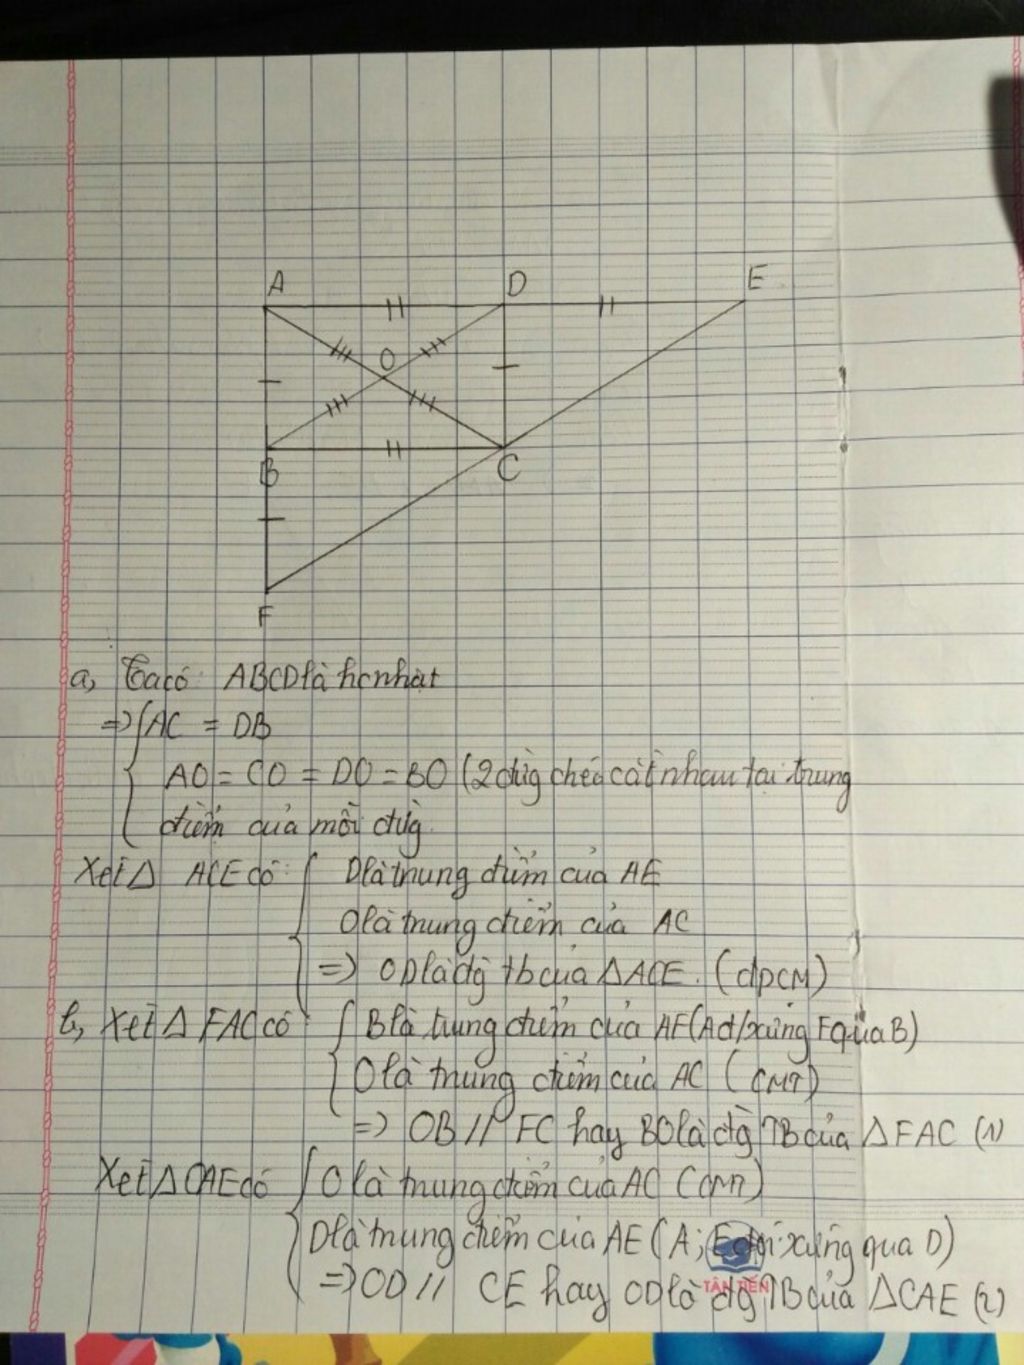 A D E
O
B C
F
a, Ta có: ABCD là hcnhật
=> { AC = DB
AO = CO = DO = BO (2 đừg chéo cắt nhau tại trung
điểm của mỗi đừg.
Xét Δ ACE có: { D là trung điểm của AE
O là trung điểm của AC
=> OD là đg tb của ΔACE. (đpCM)
b, Xét Δ FAC có { B là trung điểm của AF (A đ/xứng F qua B)
O là trung điểm của AC (CMT)
=> OB // FC hay BO là đg TB của ΔFAC (1)
Xét Δ CAE có { O là trung điểm của AC (CMT)
D là trung điểm của AE (A; E đối xứng qua D)
=> OD // CE hay OD là đg TB của ΔCAE (2)
TÂN TIẾN